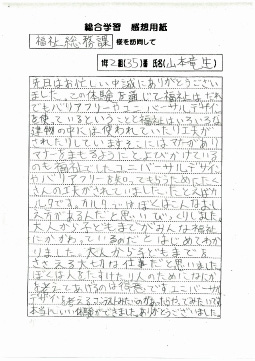 総合学習 感想用紙
福祉総務課 様を訪問して
1年2組(35)番 氏名(山本
先日はお忙しい中誠にありがとうござい
ました。この体験を通じて福祉は、だれ
でもバリアフリーユニバーサルデザイン
を使っているということと福祉はいろいろな
建物の中には使われていたり工夫が
されたりしています。そこにはマナーがあり
マナーをまもるようによびかけている
のも福祉でした。ユニバーサルデザイン
バリアフリーを知ってもらうために
さんの工夫がされていました。たとえばカ
ルタです。カルタ
えがあるんだと思いびっくりしました。
大人から子どもまでがみんな福祉
にかかわっているのだとはじめてわか
りました。大人から子どもまでを
ささえる大切な仕事だと思いました。
ぼくは人をたすけたり人のためになにか
を考えてあげるのは得意です。ユニバーサル
デザインを考える
本当にいい体験ができました。ありがとうございました。